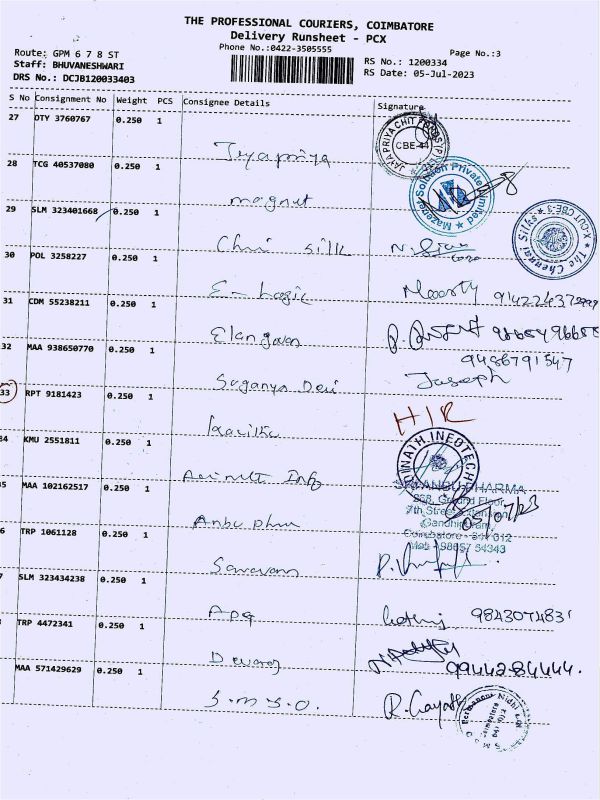 THE PROFESSIONAL COURIERS, COIMBATORE
Delivery Runsheet - PCX
Phone No.:0422-3505555
Page No.:3
Route: GPM 6 7 8 ST
Staff: BHUVANESHWARI
DRS No.: DCJB120033403
RS No.: 1200334
RS Date: 05-Jul-2023
S No Consignment No Weight PCS Consignee Details Signature
27 DTY 3760767 0.250 1
JAYA PRIYA CHIT FUNDS (P) LTD
CBE-44
Jeyapriya
28 TCG 40537080 0.250 1
Solution Private Limited
magnet
29 SLM 323401668 0.250 1
Chni silk
The Chennai Silks
30 POL 3258227 0.250 1
E-Logic Moorty
31 CDM 55238211 0.250 1
Elangovan
9486791547
32 MAA 938650770 0.250 1
Suganya Devi Joseph
33 RPT 9181423 0.250 1
HIR
34 KMU 2551811 0.250 1
ADINATH INFOTECH
Adinath Info
35 MAA 102162517 0.250 1
SRI ANBU PHARMA
Ground Floor,
7th Street
Gandhipuram,
Coimbatore - 641 012
Mob : 98657 54343
05/07/23
Anbu phar
6 TRP 1061128 0.250 1
Saravan
7 SLM 323434238 0.250 1
TRP 4472341 0.250 1
Devaraj 9944284444.
MAA 571429629 0.250 1
S.M.S.O. R. Gayath